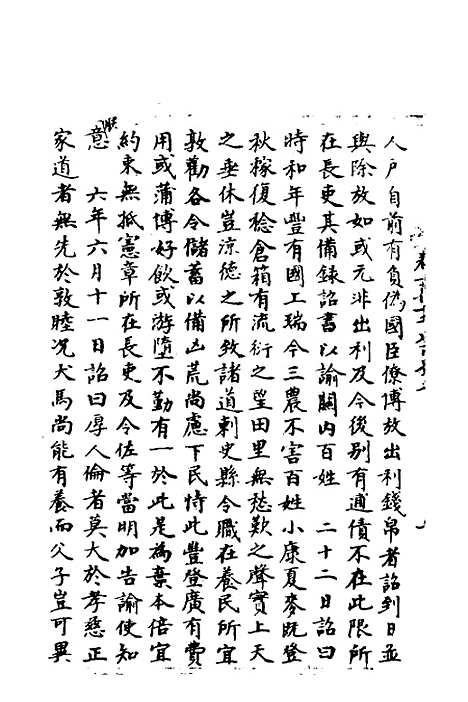 人戶自前有負偽國臣僚博放出利錢帛者詔到日並
與除放如或元非出利及今後別有逋債不在此限所
在長吏其備錄詔書以諭關內百姓　二十二日詔曰
時和年豐有國工瑞今三農不害百姓小康夏麥既登
秋稼復稔倉箱有流衍之望田里無愁歎之聲實上天
之垂休豈涼德之所致諸道刺史縣令職在養民所宜
敦勸各令儲蓄以備凶荒尚慮下民恃此豐登廣有費
用或蒲博好飲或游墮不勤有一於此是為棄本倍宜
約束無抵憲章所在長吏及令佐等當明加告諭使知
意　六年六月十一日詔曰厚人倫者莫大於孝慈正
家道者無先於敦睦况犬馬尚能有養而父子豈可異